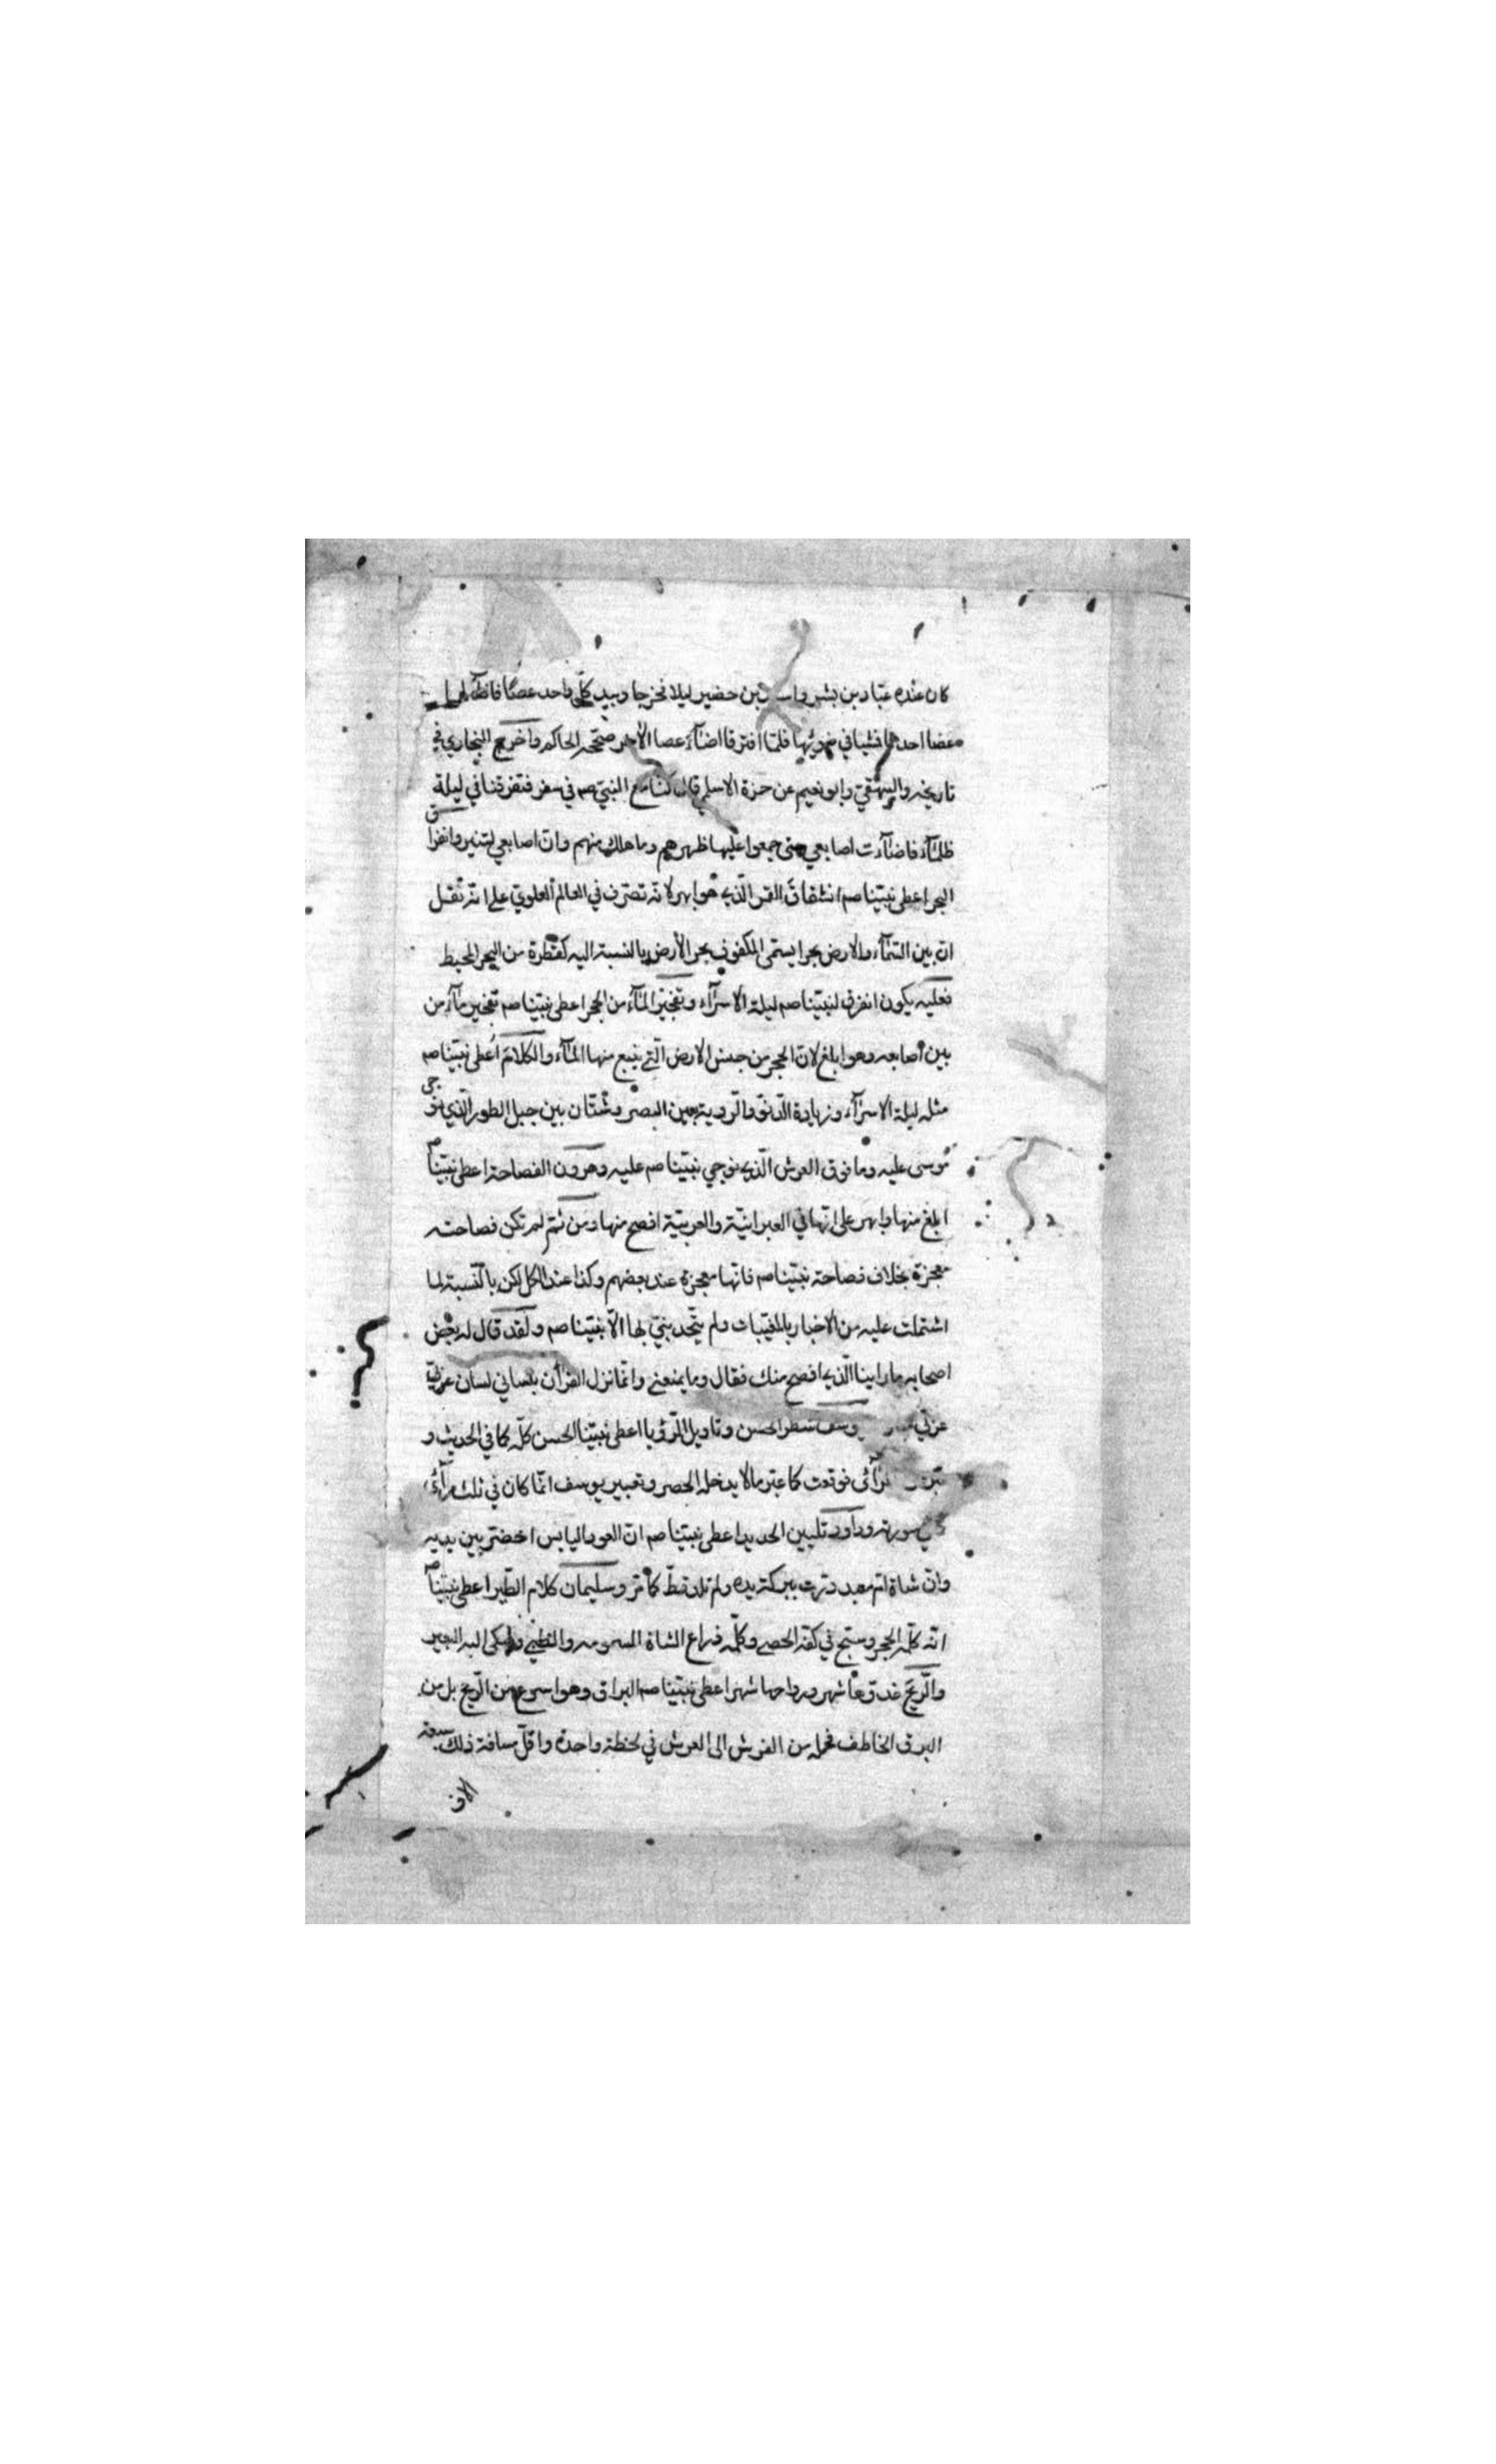 كان عنده عبّاد بن بشر بن حضير ليلا فخرجا وبيد كلّ واحد عصًا فاضآء لهما
عصا احدهما فمشيا في ضوئها فلمّا افترقا اضآءَ عصا الآخر صحّحه الحاكم واخرج البخاري في
تاريخه والبيهقيّ وابو نعيم عن حمزة الاسلمي قال كنّا مع النبيّ صم في سفر فتفرقنا في ليلة
ظلمآء فاضآءت اصابعي حتى جمعوا عليها ظهرهم وما هلك منهم وانّ اصابعي لتنير وانفراق
البحر اعطى نبيّنا صم انشقاقَ القمر الّذي هو ابهر لانّه تصرّف في العالم العلويّ على انّه نُقل
انّ بين السّمآء والارض بحرا يسمّى المكفوف بحر الأرض بالنسبة اليه كقطرة من البحر المحيط
فعليه يكون انفرق لنبيّنا صم ليلة الاسرآء وتفجيرَ المآء من الحجر اعطى نبيّنا صم تفجير مآء من
بين اصابعه وهو ابلغ لانّ الحجر من جنس الارض الّتي ينبع منها المآء والكلامَ اُعطى نبيّنا صم
مثله ليلة الاسرآء وزيادة الدّنوّ والرّوية بعين البصر وشتّان بين جبل الطور الّذي نوجي
موسى عليه وما فوق العرش الّذي نوجي نبيّنا صم عليه وهرون الفصاحة اعطى نبيّنا صم
ابلغ منها وابهر على انّها في العبرانيّة والعربيّة افصح منها ومن ثمّ لم تكن فصاحته
معجزة بخلاف فصاحة نبيّنا صم فانّها معجزة عند بعضهم وكذا عند الكل لكن بالنّسبة لما
اشتملت عليه من الاخبار بالمغيّبات ولم يتّحد بنبيّ لها الّا نبيّنا صم ولقد قال له بعض
اصحابه ما راينا الّذي افصح منك فقال وما يمنعني وانّما نزل القرآن بلساني لسان عربيّ
عربيّ وسف شطر الحسن وتاويل الرّؤيا اعطى نبيّنا الحسن كلّه كما في الحديث و
المرآئى فوقعت كما عبّر ما لا يدخله الحصر وتعبير يوسف انّما كان في ثلث مرآءٍ
في سورته وداود تليين الحديد اعطى نبيّنا صم انّ العود اليابس اخضرّ بين يديه
وانّ شاة امّ معبد درّت ببركة يده ولم تلد قطّ كما مرّ وسليمان كلام الطّير اعطى نبيّنا صم
انّه كلّمه الحجر وسبّح في كفّه الحصى وكلّمه ذراع الشاة المسمومة والظبي وشكى اليه البعير
والرّيحَ غدوّها شهر ورواحها شهر اعطى نبيّنا صم البراق وهو اسرع من الرّيح بل من
البرق الخاطف فحمله من الفرش الى العرش في لحظة واحدة واقلّ مسافة ذلك سبعة
الاف